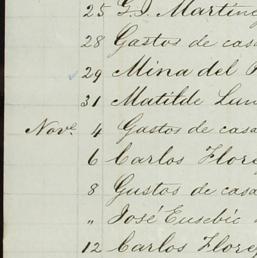 25 G. J. Martin
28 Gastos de casa
29 Mina del
31 Matilde Lun
Nove. 4 Gastos de casa
6 Carlos Flore
8 Gustos de casa
„ José Eusebio
12 Carlos Flore